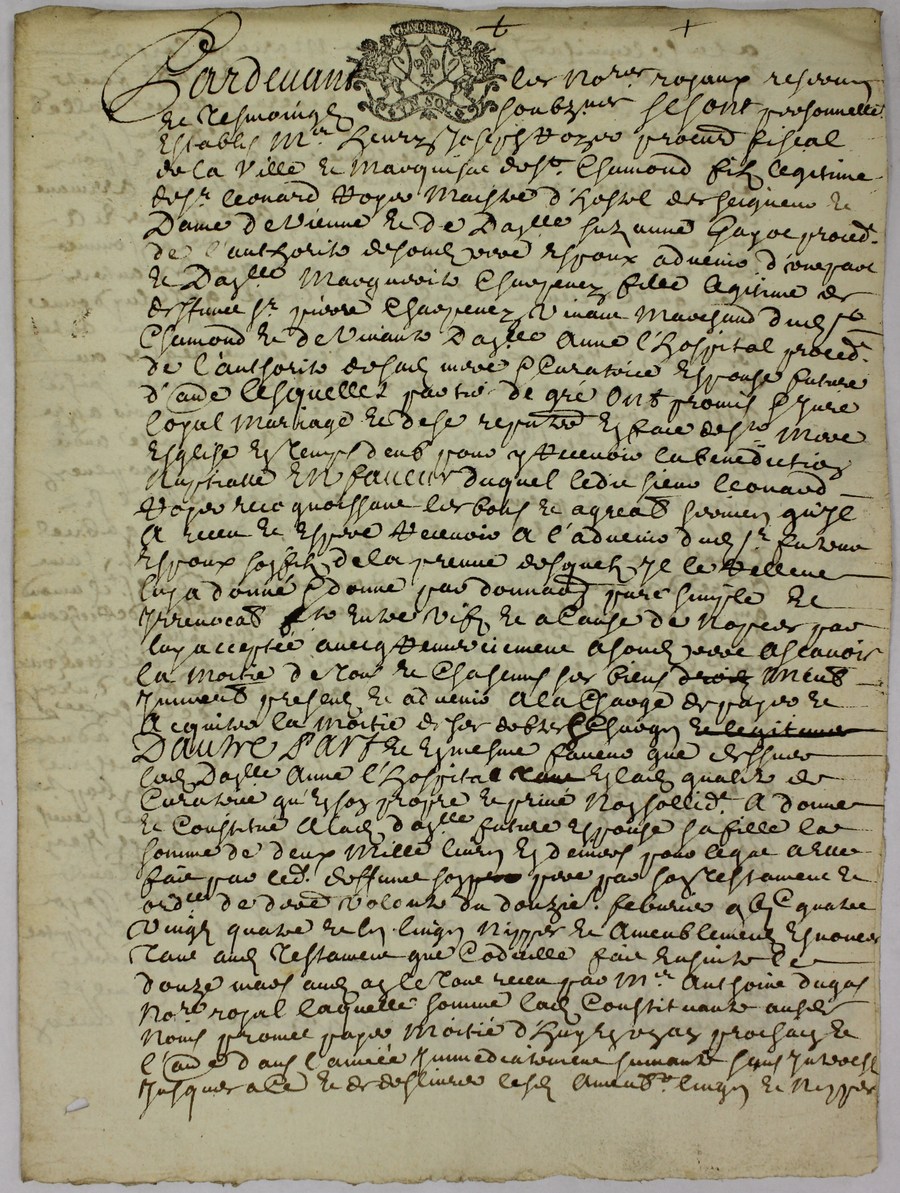 GEN DE LYON
UN SOL
Pardevant les No.res royaux reservez
et tesmoings soubz.nez se sont personnelle.t
establis M.re Henry Joseph Hoyer procur fiscal
de la Ville et Marquisac de S.t Chamond filz legitime
de S.r Leonard Hoyer Maistre d'Hostel de seigneur le
Dame de Vienne et de Da.lle Suzanne Gayot proced.t
de l'authorité de son père espoux advenir d'une part
et Da.lle Margueritte Charpenez fille legitime de
deffunct S.r pierre Charpenez vivant Marchand dud S.t
Chamond et de vivante Da.lle Anne l'Hospital proced.t
de l'authorité de sad mere & Curatrice Espouse future
d'autre lesquelles parties de gré Ont promis & Juré
loyal Mariage et de se reputer en face de S.te Mere
Eglise en temps deub pour y Recevoir la benediction
Nuptialle EN faveur duquel ledit sieur Leonard
Hoyer recognoissant les bons et agreab services qu'il
A receu et espere Recevoir A l'advenir dud S.r futeur
Espoux son filz de la preuve desquelz Il le Relleve
luy a donné & donne par donnaon pure simple et
Irrevocab faite entre vifz et a cause de Nopces par
luy acceptée avecq Remerciement a sond père ascavoir
la Moitié de tous et Chascuns ses biens Meub
Immeub presens et advenir A la Charge de payer et
Acquitter la Moitié de ses debtes & charges et legitimes
D'AUTRE PART et en mesme faveur que dessus
lad Da.lle Anne l'Hospital tant en lad qualité de
Curatrice qu'en son propre et privé Nom sollid.t A donné
et Constitué A lad da.lle future espouse sa fille la
somme de deux Mille livres en deniers pour legat a elle
fait par led. deffunct son père par son Testament et
ord.ce de derre volonté du douzie. febvrier 9 bjC quatre
vingt quatre et les linges Nippes et Ameublement enoncés
tant aud Testament que Codicille fait ensuitte le
douze mars aud an le tout receu par M.re Anthoine dugas
No.re royal laquelle somme lad Constituante ausd
Noms promet payer Moitié d'huy en un an prochain et
l'autre dans l'année Immediatement suivante sans Interest
Jusques a ce et de deslivrer lesd Ameub.t linges et Nippes